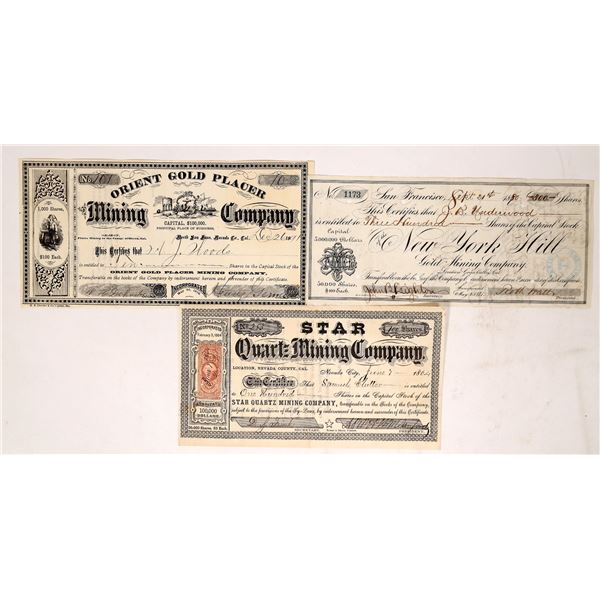 No. 101
10
ORIENT GOLD PLACER
Mining Company
CAPITAL, $100,000,
PRINCIPAL PLACE OF BUSINESS,
North San Juan, Nevada Co., Cal.
1,000 Shares,
$100 Each.
This Certifies that J. Woods
is entitled to Ten Shares in the Capital Stock of the
ORIENT GOLD PLACER MINING COMPANY.
Transferable on the books of the Company by indorsement hereon and surrender of this Certificate
INCORPORATED
No. 1173
San Francisco, Sept 21st 1880 300 Shares
This Certifies that J. B. Underwood
is entitled to Three Hundred Shares of the Capital Stock
Capital
5,000,000 Dollars
New York Hill
Gold Mining Company.
50,000 Shares
$100 Each
Secretary
President
INCORPORATED
February 2, 1864
100,000
DOLLARS.
No.
STAR
Ten Shares
Quartz Mining Company.
LOCATION, NEVADA COUNTY, CAL.
Nevada City, June 7 1864
This Certifies That Samuel Clutter is entitled
to One Hundred Shares in the Capital Stock of the
STAR QUARTZ MINING COMPANY, transferable on the Books of the Company,
subject to the provisions of the By-Laws, by indorsement hereon and surrender of this Certificate.
SECRETARY.
PRESIDENT.